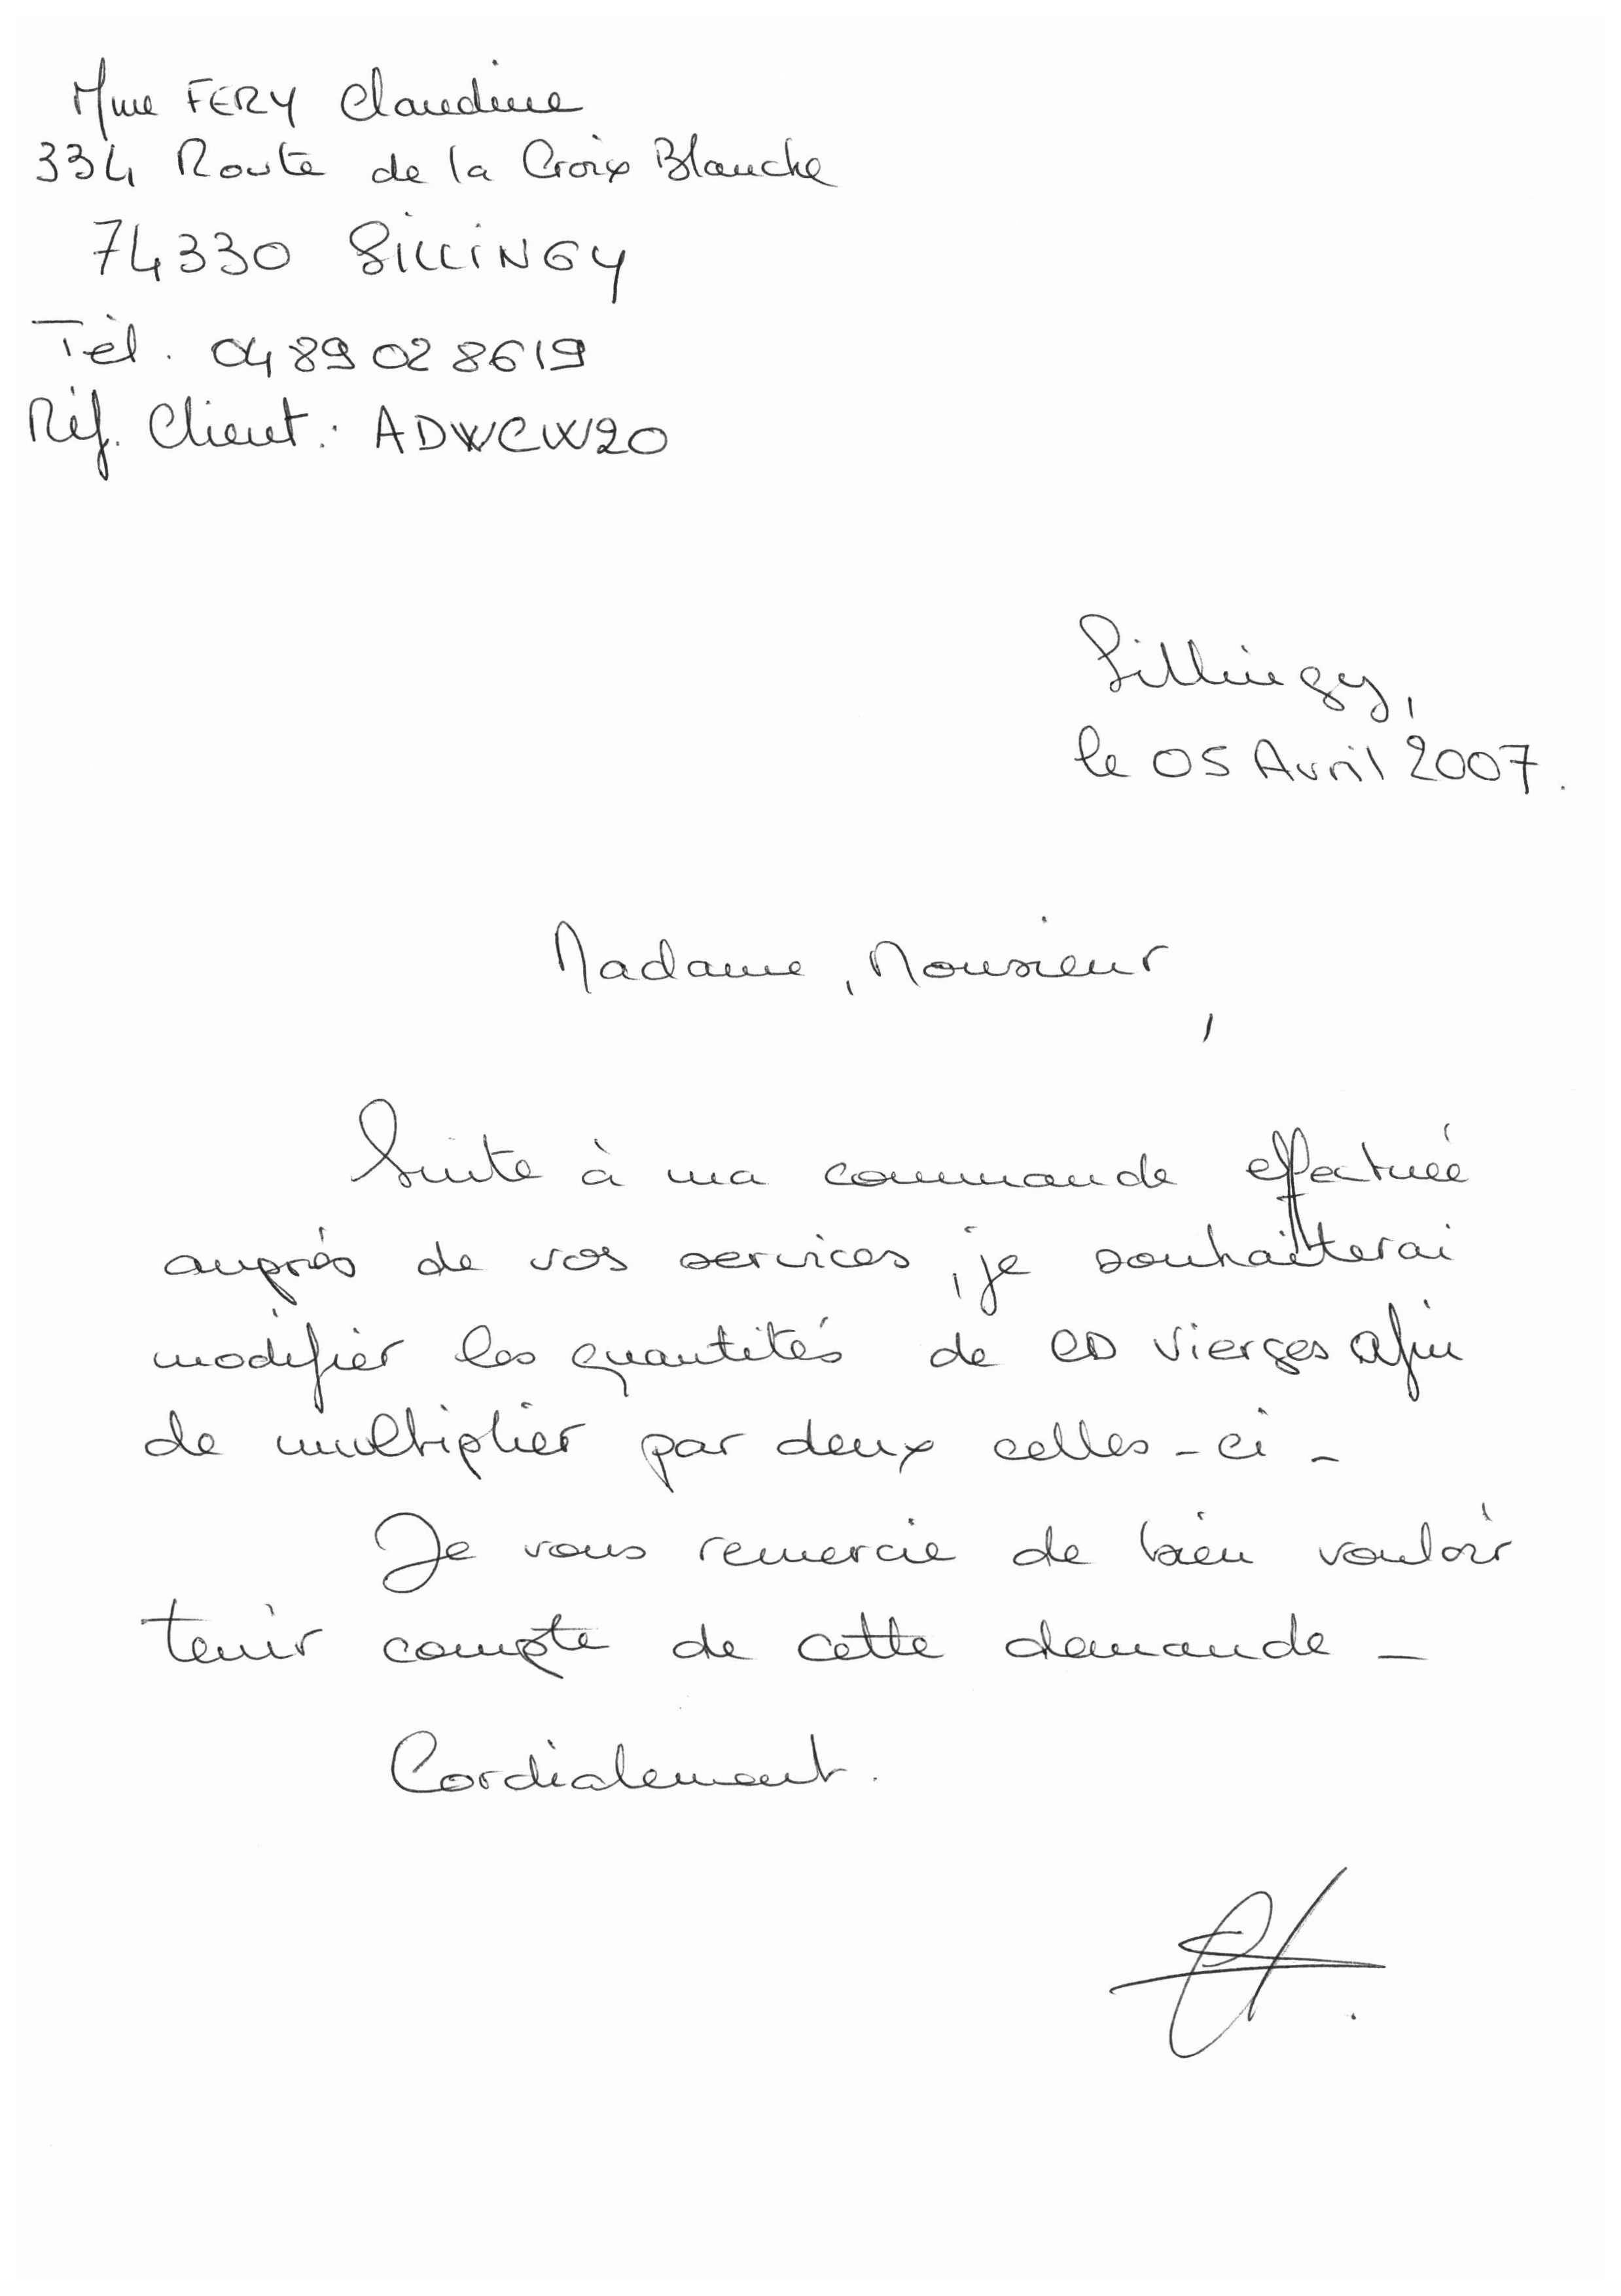 Mme FERY Claudine
334 Route de la Croix Blanche
74330 SILLINGY
Tèl. 04 89 02 86 19
Réf. Client : ADWCW20
Sillingy,
le 05 Avril 2007.
Madame, Monsieur,
Suite à ma commande effectuée
auprès de vos services, je souhaitterai
modifier les quantités de CD Vierges afin
de multiplier par deux celles-ci -
Je vous remercie de bien vouloir
tenir compte de cette demande -
Cordialement.